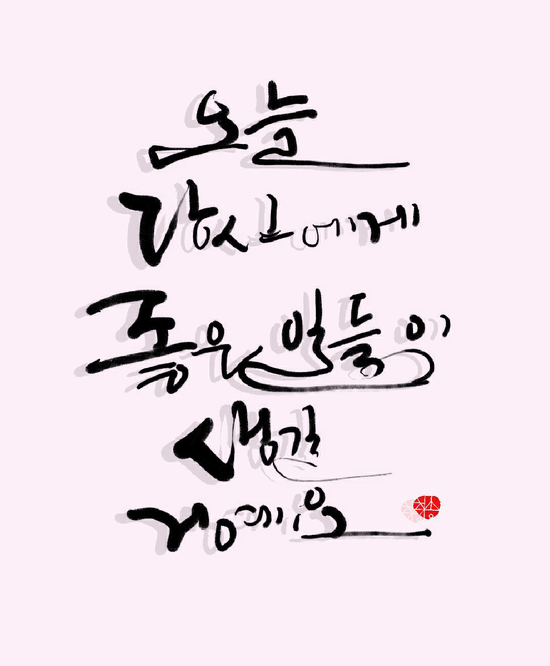 오늘
당신에게
좋은 일들이
생길
거예요